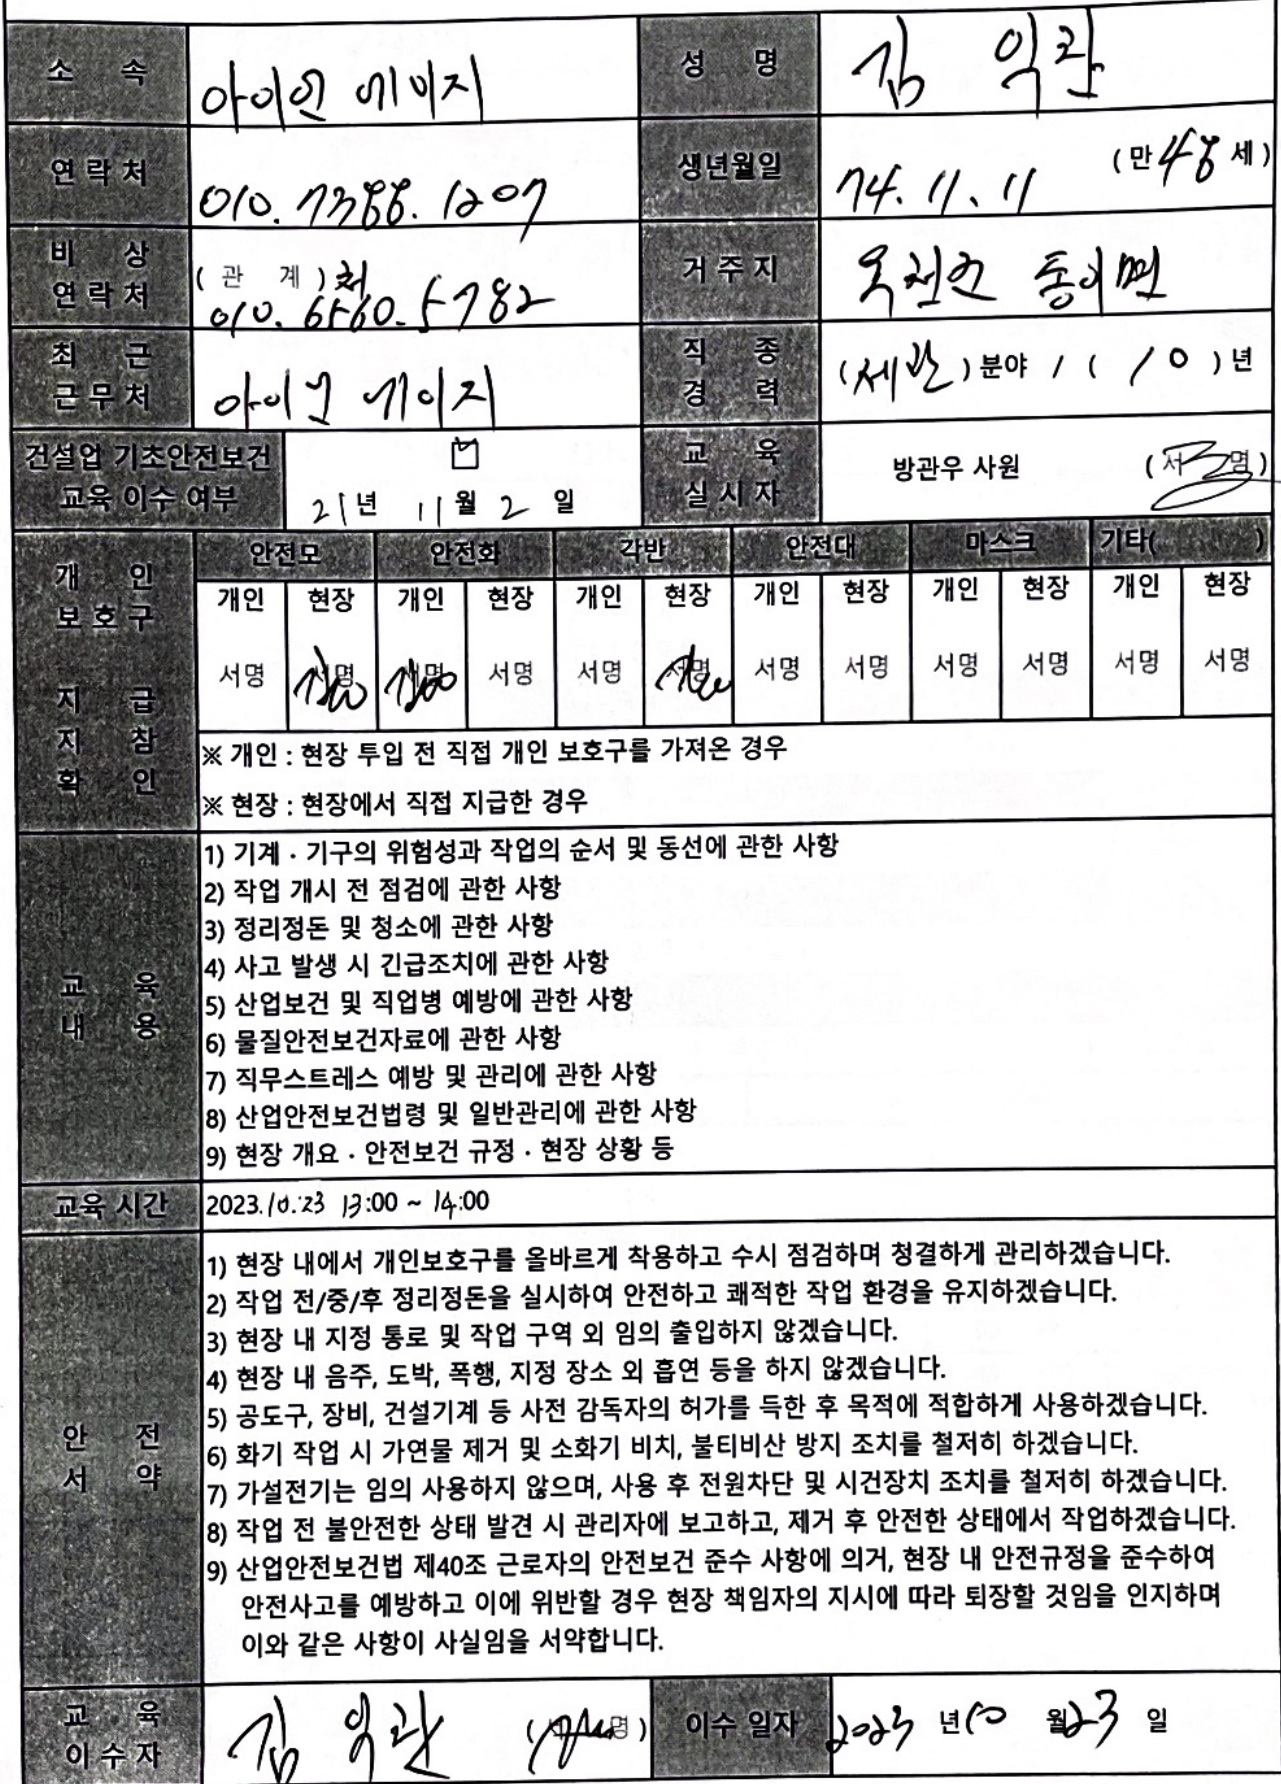 소 속 아이엔 에이지 성 명 김 익관
연 락 처 010. 7388. 1207 생년월일 74. 11. 11 (만 48 세)
비 상
연 락 처 ( 관 계 ) 처
010. 6560. 5782 거 주 지 옥천군 동이면
최 근
근 무 처 아이엔 에이지 직 종
경 력 ( ) 분야 / ( 10 ) 년
건설업 기초안전보건
교육 이수 여부 21년 11월 2 일 교 육
실 시 자 방관우 사원 (서명)
개 인
보 호 구
지 급
지 참
확 인
안전모 안전화 각반 안전대 마스크 기타( )
개인 현장 개인 현장 개인 현장 개인 현장 개인 현장 개인 현장
서명 서명 서명 서명 서명 서명 서명 서명 서명 서명 서명 서명
※ 개인 : 현장 투입 전 직접 개인 보호구를 가져온 경우
※ 현장 : 현장에서 직접 지급한 경우
교 육
내 용
1) 기계 · 기구의 위험성과 작업의 순서 및 동선에 관한 사항
2) 작업 개시 전 점검에 관한 사항
3) 정리정돈 및 청소에 관한 사항
4) 사고 발생 시 긴급조치에 관한 사항
5) 산업보건 및 직업병 예방에 관한 사항
6) 물질안전보건자료에 관한 사항
7) 직무스트레스 예방 및 관리에 관한 사항
8) 산업안전보건법령 및 일반관리에 관한 사항
9) 현장 개요 · 안전보건 규정 · 현장 상황 등
교육 시간 2023.10.23 13:00 ~ 14:00
안 전
서 약
1) 현장 내에서 개인보호구를 올바르게 착용하고 수시 점검하며 청결하게 관리하겠습니다.
2) 작업 전/중/후 정리정돈을 실시하여 안전하고 쾌적한 작업 환경을 유지하겠습니다.
3) 현장 내 지정 통로 및 작업 구역 외 임의 출입하지 않겠습니다.
4) 현장 내 음주, 도박, 폭행, 지정 장소 외 흡연 등을 하지 않겠습니다.
5) 공도구, 장비, 건설기계 등 사전 감독자의 허가를 득한 후 목적에 적합하게 사용하겠습니다.
6) 화기 작업 시 가연물 제거 및 소화기 비치, 불티비산 방지 조치를 철저히 하겠습니다.
7) 가설전기는 임의 사용하지 않으며, 사용 후 전원차단 및 시건장치 조치를 철저히 하겠습니다.
8) 작업 전 불안전한 상태 발견 시 관리자에 보고하고, 제거 후 안전한 상태에서 작업하겠습니다.
9) 산업안전보건법 제40조 근로자의 안전보건 준수 사항에 의거, 현장 내 안전규정을 준수하여
안전사고를 예방하고 이에 위반할 경우 현장 책임자의 지시에 따라 퇴장할 것임을 인지하며
이와 같은 사항이 사실임을 서약합니다.
교 육
이 수 자 김 익관 (서명) 이수 일자 2023 년 10 월 23 일